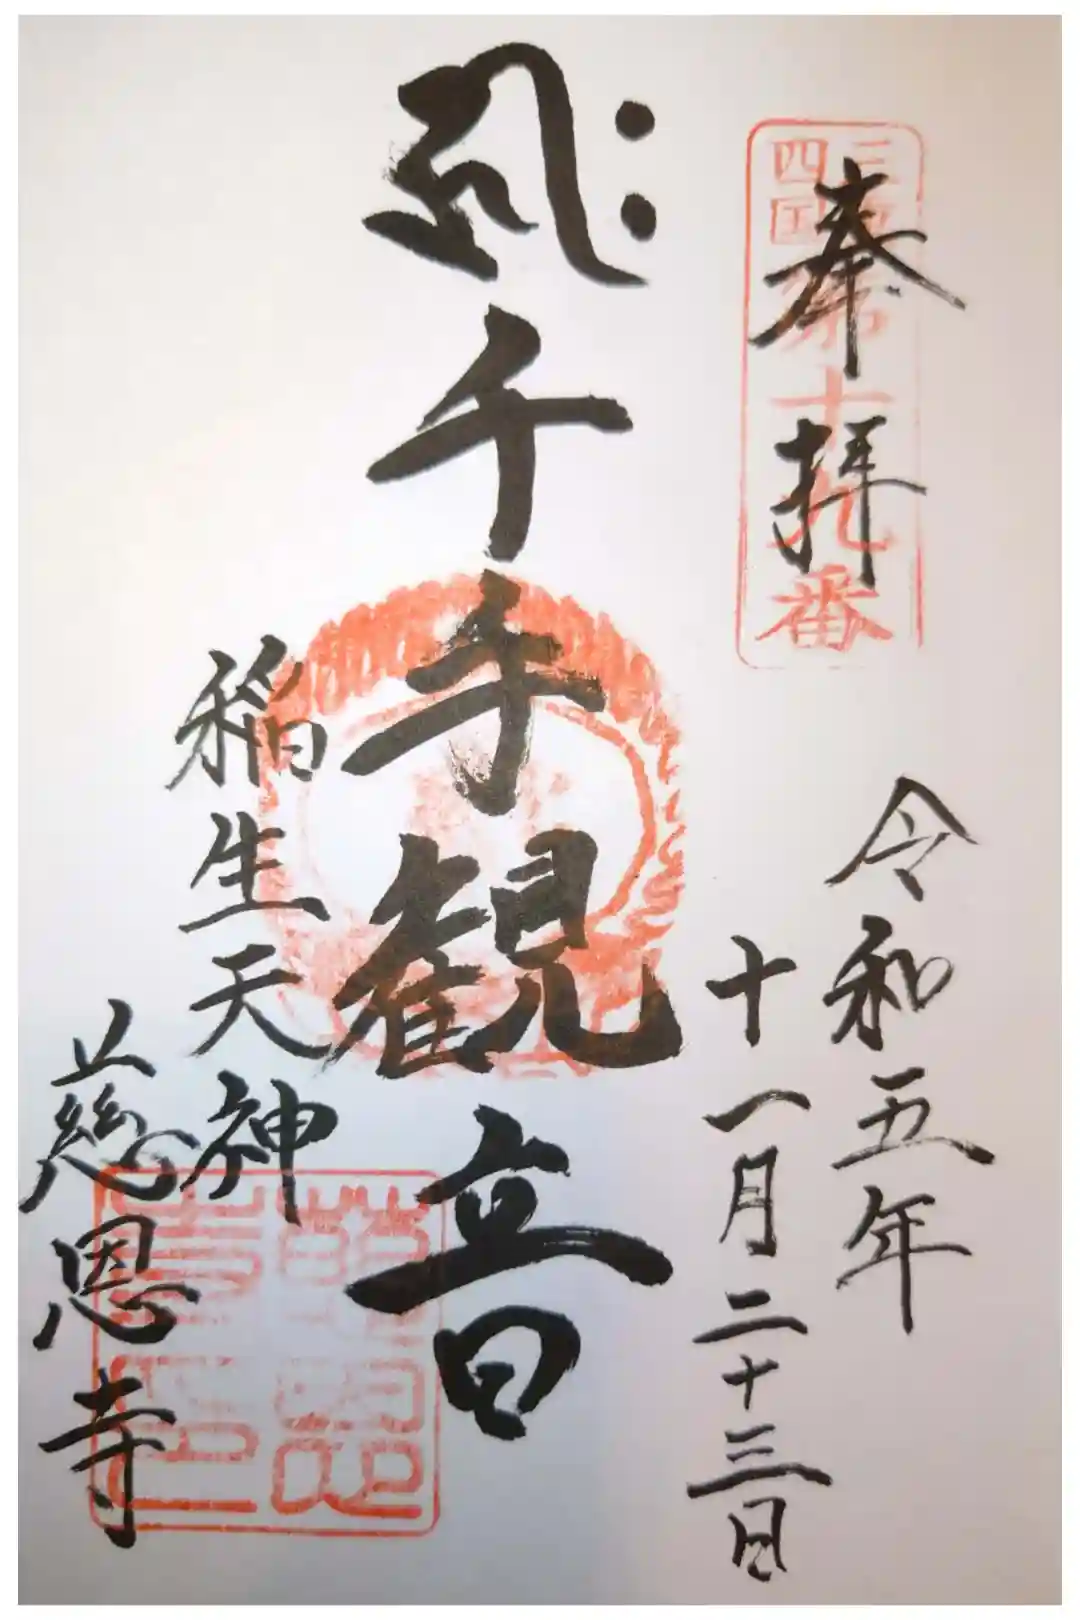 奉拝
四国
第十九番
令和五年
十一月二十三日
千手観音
稲生天神
慈恩寺